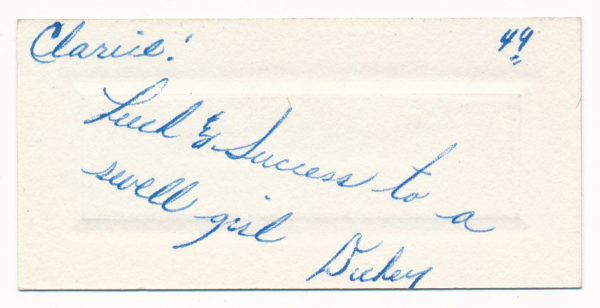 Clarice! 44
Luck & Success to a
swell girl
Dickey